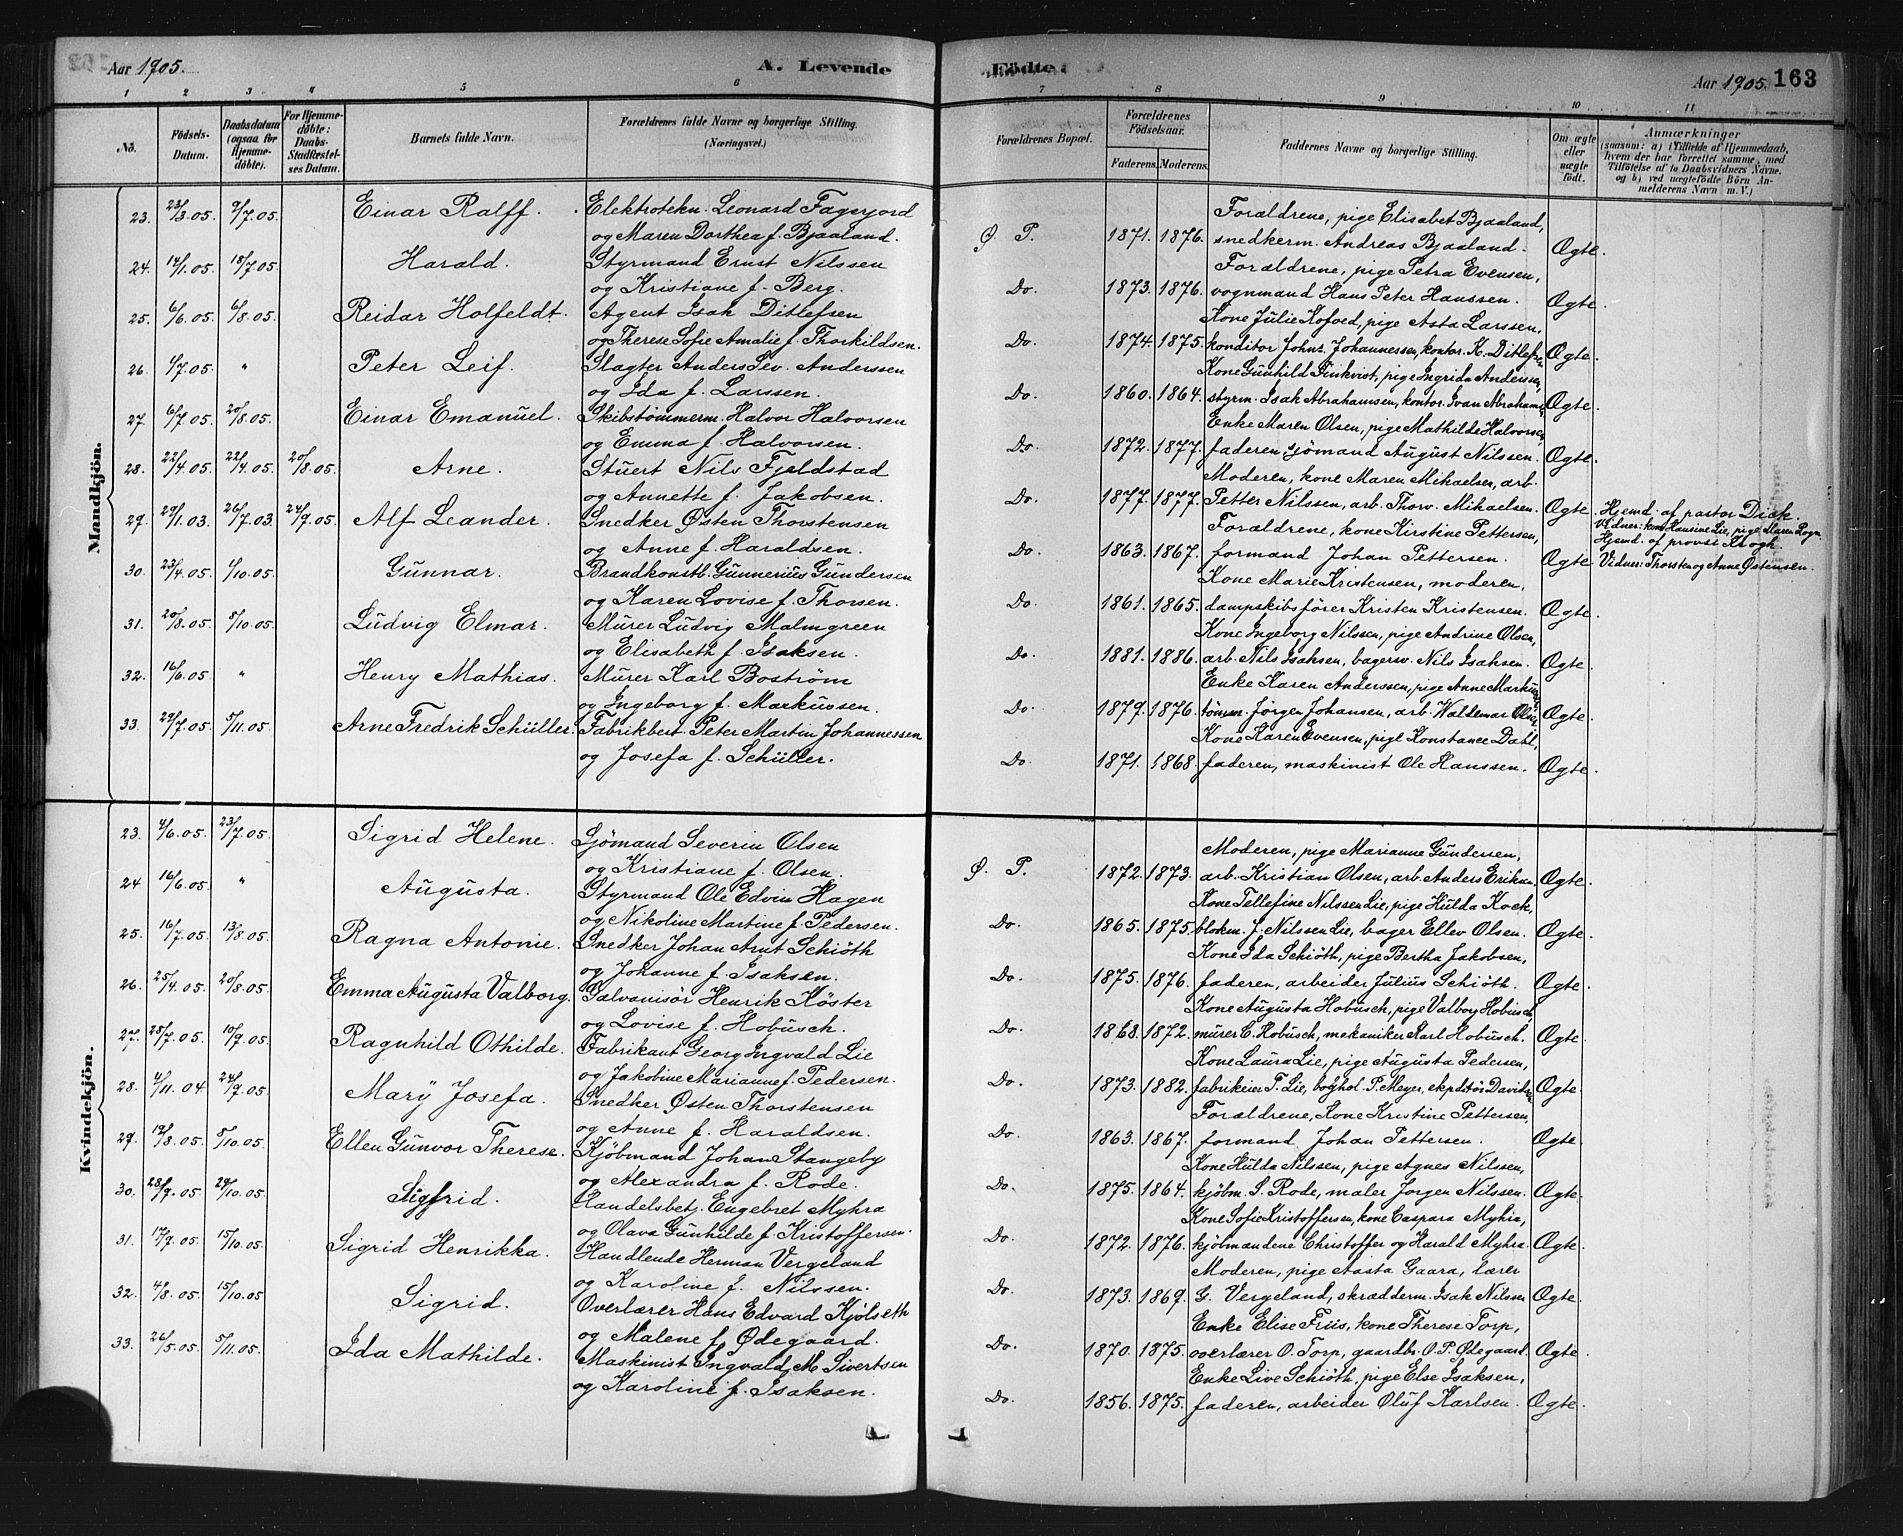 Aar 1905. A. Levende Födte. Aar 1905. 163
1 2 3 4 5 6 7 8 9 10 11
No. Födsels-Datum. Daabsdatum (ogsaa for Hjemmedöbte). For Hjemmedöbte: Daabs-Stadfæstelses Datum. Barnets fulde Navn. Forældrenes fulde Navne og borgerlige Stilling. (Næringsvei.) Forældrenes Bopæl. Forældrenes Födselsaar. Faderens. Moderens. Faddernes Navne og borgerlige Stilling. Om ægte eller uægte födt. Anmærkninger (saasom: a) i Tilfælde af Hjemmedaab, hvem der har forrettet samme, med Tilföielse af to Daabsvidners Navne, og b) ved uægtefödte Börn Anmelderens Navn m. V.)
Mandkjön.
23. 23/3.05. 9/7.05. Einar Ralff. Elektrotekn. Leonard Fagerjord Forældrene, pige Elisabet Bjaaland,
og Maren Dorthea f. Bjaaland. Ø. P. 1871. 1876. snedkerm. Andreas Bjaaland. Ægte.
24. 14/1.05. 18/7.05. Harald. Styrmand Ernst Nilssen Forældrene, pige Petra Evensen,
og Kristiane f. Berg. Do. 1873. 1876. vognmand Hans Peter Hanssen. Ægte.
25. 6/6.05. 6/8.05. Reidar Holfeldt. Agent Isak Ditlefsen Kone Julie Kofoed, pige Asta Larssen,
og Therese Sofie Amalie f. Thorkildsen. Do. 1874. 1875. konditor Johs. Johannessen, kontor. K. Ditlefsen Ægte.
26. 1/7.05. " Peter Leif. Slagter Anders Sev. Anderssen Kone Gunhild Finkvist, pige Ingrida Andersen,
og Ida f. Larssen. Do. 1860. 1864. styrm. Isak Abrahamsen, kontor. Ivan Abrahams. Ægte.
27. 6/7.05. 20/8.05. Einar Emanuel. Skibstømmerm. Halvor Halvorsen Enke Maren Olsen, pige Mathilde Halvorsen
og Emma f. Halvorsen. Do. 1872. 1877. faderen, sjömand August Nilssen. Ægte.
28. 22/4.05. 22/4.05. 20/8.05. Arne. Stuert Nils Fjeldstad Moderen, kone Maren Mikaelsen, arb.
og Annette f. Jakobsen. Do. 1877. 1877. Petter Nilssen, arb. Thorv. Mikaelsen. Ægte. Hjemd. af pastor Dick.
Vidner: kone Hansine Lie, pige Maren Rogn
29. 29/1.03. 26/7.03. 24/9.05. Alf Leander. Snedker Østen Thorstensen Forældrene, kone Kirstine Pettersen, Hjemd. af provst Krogh.
og Anne f. Haraldsen. Do. 1863. 1867. formand Johan Pettersen. Ægte. Vidner: Thorsten og Anne Østensen.
30. 23/4.05. 1/10.05. Gunnar. Brandkonstb. Gunnerius Gundersen Kone Marie Kristensen, moderen,
og Karen Lovise f. Thorsen. Do. 1861. 1865. dampskibsfører Kristen Kristensen. Ægte.
31. 20/8.05. 5/10.05. Ludvig Elmar. Murer Ludvig Malmgreen Kone Ingeborg Nilssen, pige Andrine Olsen,
og Elisabeth f. Isaksen. Do. 1881. 1886. arb. Nils Isaksen, bagersv. Nils Isaksen. Ægte.
32. 16/6.05. " Henry Mathias. Murer Karl Boström Enke Karen Anderssen, pige Anne Markussen
og Ingeborg f. Markussen. Do. 1879. 1876. tömm. Jørgen Johansen, arb. Waldemar Olsen Ægte.
33. 29/7.05. 5/11.05. Arne Fredrik Schüller. Fabrikbest. Peter Martin Johannessen Kone Karen Evensen, pige Konstance Dahl,
og Josefa f. Schüller. Do. 1871. 1868. faderen, maskinist Ole Hanssen. Ægte.
Kvindekjön.
23. 4/6.05. 23/7.05. Sigrid Helene. Sjømand Severin Olsen Moderen, pige Marianne Gundersen,
og Kristiane f. Olsen. Ø. P. 1872. 1873. arb. Kristian Olsen, arb. Anders Eriksen Ægte.
24. 16/6.05. " Augusta. Styrmand Ole Edvin Hagen Kone Tellefine Nilssen Lie, pige Hulda Kock,
og Nikoline Martine f. Pedersen. Do. 1865. 1875. blokm. J. Nilssen Lie, bager Ellev Olsen. Ægte.
25. 16/7.05. 13/8.05. Ragna Antonie. Snedker Johan Arnt Schiöth Kone Ida Schiöth, pige Bertha Jakobsen,
og Johanne f. Isaksen. Do. 1875. 1876. faderen, arbeider Julius Schiöth. Ægte.
26. 25/4.05. 20/8.05. Emma Augusta Valborg. Galvanisör Henrik Köster Kone Augusta Hobusch, pige Valborg Hobusch,
og Lovise f. Hobusch. Do. 1868. 1872. murer C. Hobusch, mekaniker Karl Hobusch. Ægte.
27. 28/7.05. 10/9.05. Ragnhild Othilde. Fabrikant Georg Ingvald Lie Kone Laura Lie, pige Augusta Pedersen,
og Jakobine Marianne f. Pedersen. Do. 1873. 1882. fabrikeier T. Lie, boghol. P. Meyer, ekpditör Davids. Ægte.
28. 4/11.04 24/9.05. Mary Josefa. Snedker Østen Thorstensen Forældrene, kone Kristine Pettersen,
og Anne f. Haraldsen. Do. 1863. 1867. formand Johan Pettersen. Ægte.
29. 19/8.05. 5/10.05. Ellen Gunvor Therese. Kjøbmand Johan Stangeby Kone Hulda Nilssen, pige Agnes Nilssen,
og Alexandra f. Rode. Do. 1875. 1864. kjöbm. S. Rode, maler Jørgen Nilssen. Ægte.
30. 28/9.05. 29/10.05. Sigfrid. Handelsbetj. Engebret Myhra Kone Sofie Kristoffersen, kone Caspara Myhra,
og Olava Gunhilde f. Kristoffersen. Do. 1872. 1876. kjöbmændene Christoffer og Harald Myhra. Ægte.
31. 17/9.05. 15/10.05. Sigrid Henrikka. Handlende Herman Vergeland Moderen, pige Aasta Gaara, lærer
og Karoline f. Nilssen. Do. 1873. 1869. G. Vergeland, skrædderm. Isak Nilssen Ægte.
32. 4/8.05. 15/10.05 Sigrid. Overlærer Hans Edvard Kjölseth Enke Elise Friis, kone Therese Torp,
og Malene f. Ødegaard. Do. 1870. 1875. overlærer O. Torp, gaardbr. O. P. Ødegaard. Ægte.
33. 26/5.05. 5/11.05. Ida Mathilde. Maskinist Ingvald M. Sivertsen Enke Live Schiöth, pige Else Isaksen,
og Karoline f. Isaksen. Do. 1856. 1875. faderen, arbeider Oluf Karlsen. Ægte.